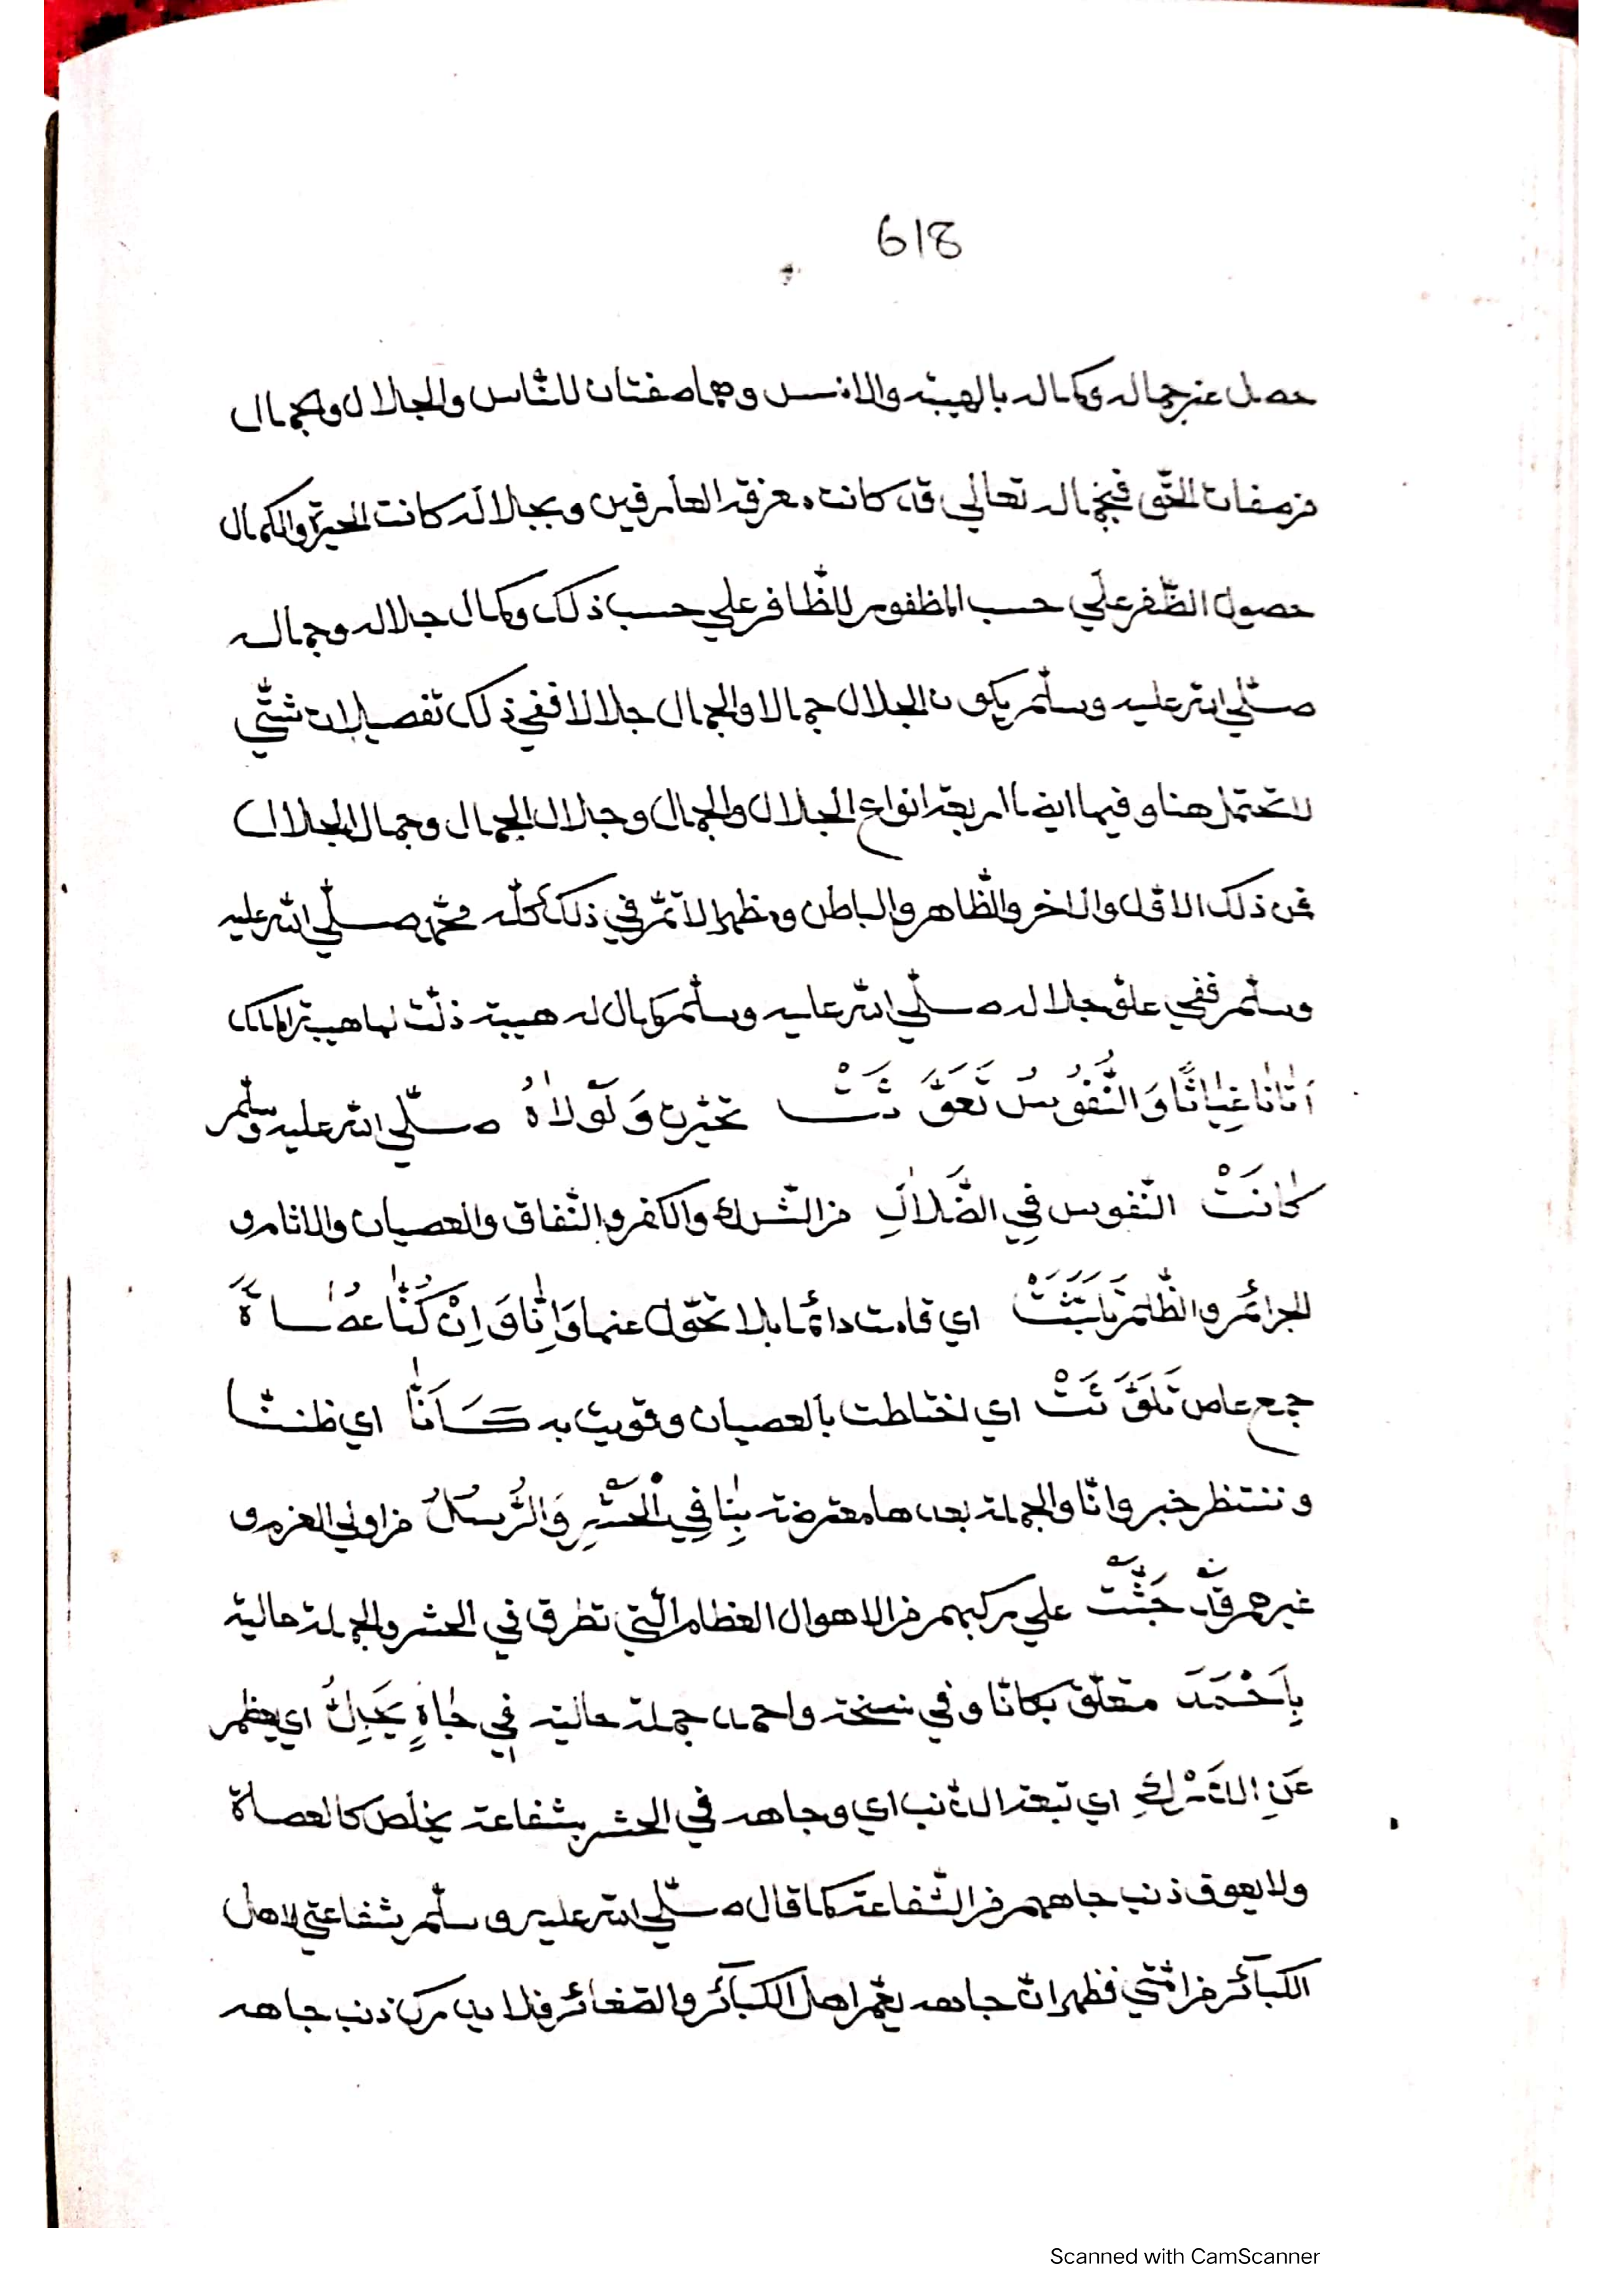 618
حصل عنر جماله وكماله بالهيبة والانس وهما صفتان للنّاس والجلال والجمال
من صفات الحقّ فبجماله تعالي قد كانت معرفة العارفين وبجلاله كانت الحيرة والكمال
حصول الظّفر علي حسب المظفور للظّافر علي حسب ذلك وكمال جلاله وجماله
صلّي الله عليه وسلّم يكون الجلال جمالا والجمال جلالا ففي ذلك تفصيلات شتّي
لا تحتمل هنا وفيها ايضا اربعة انواع الجلال والجمال وجلال الجمال وجمال الجلال
فمن ذلك الاوّل والاخر والظّاهر والباطن ومظهر الاتمّ في ذلك كلّه محمّد صلّي الله عليه
وسلّم ففي علوّ جلاله صلّي الله عليه وسلّم كمال له هيبة ذلّت لها هيبة الملك
اَتَانَا غِيَاثًا وَالنُّفُوسُ تَعَوَّذَتْ تحيّرن وَلَوْلَاهُ صلّي الله عليه وسلّم
كَانَتْ النّفوس فِي الضَّلَالِ من الشّرك والكفر والنّفاق والعصيان والاثام و
الجرائم والظّلم تَابَّدَتْ اي قامت دائما بلا تحوّل عنها وَاِنَّا وَاِنْ كُنَّا عُصَاةً
جمع عاص تَلَوَّثَتْ اي اختلطت بالعصيان وقويت به كَاَنَّا اي ظننّا
وننتظر خبر وانّا والجملة بعدها معترضة بِنَا فِي الْحَشْرِ وَالرُّسْلُ من اولي العزم و
غيرهم قَدْ جَثَتْ علي ركبهم من الاهوال العظام الّتي تطرق في الحشر والجملة حالية
بِاَحْمَدَ متعلّق بكانّا وفي نسخة واحمد جملة حالية فِي جَاهٍ يَجِلُّ اي يعظم
عَنِ الدَّرْكِ اي تبعة الذّنب اي وجاهه في الحشر بشفاعة يخلّص كالعصاة
ولا يعوق ذنب جاههم من الشّفاعة كما قال صلّي الله عليه وسلّم شفاعتي لاهل
الكبآئر من امّتي فظهر انّ جاهه يعمّ اهل الكبآئر والصّغائر فلا يدرك ذنب جاهه
Scanned with CamScanner